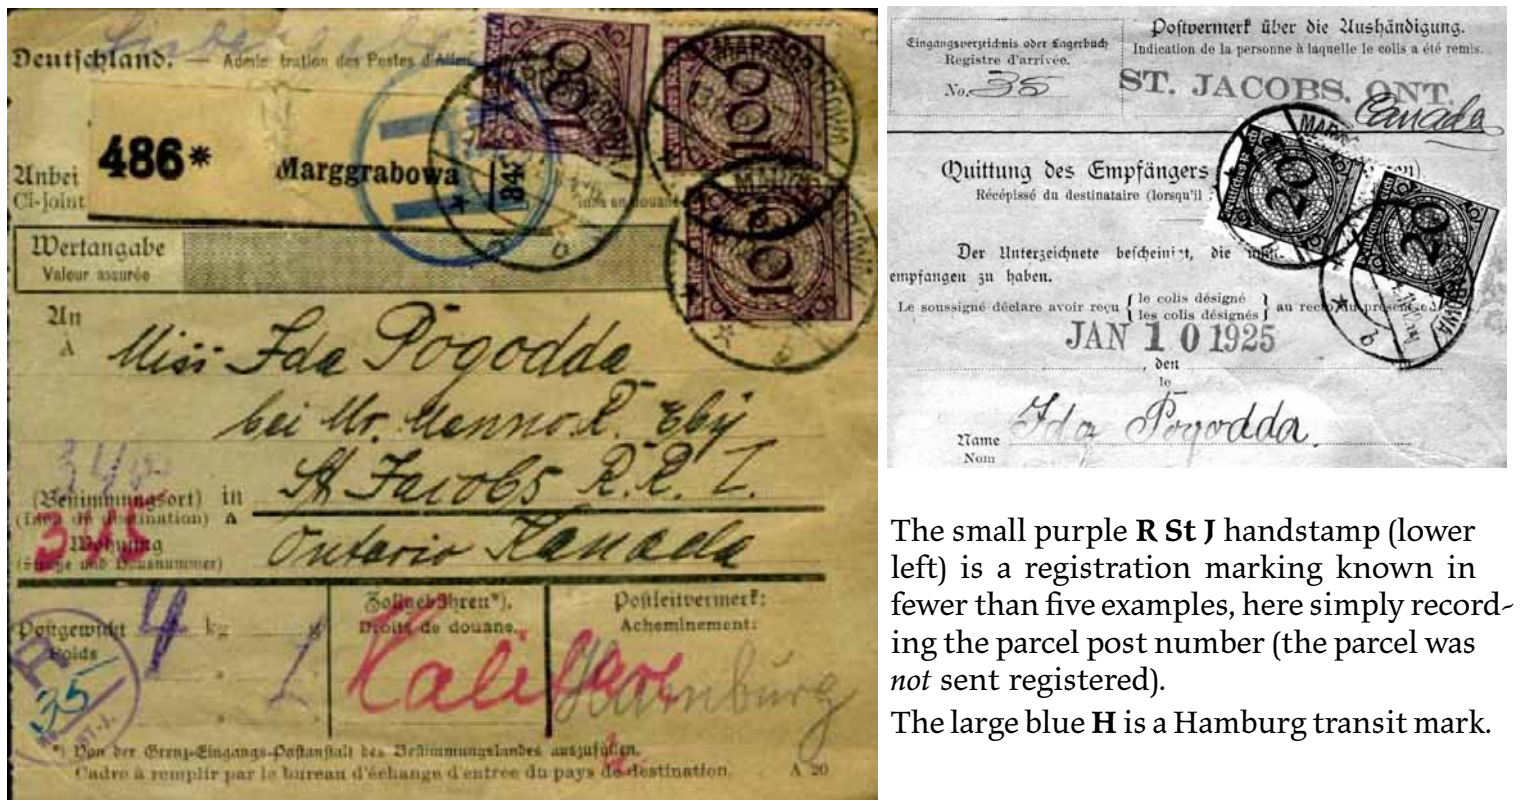 Deutschland. — Administration des Postes d'Allem
486*
Marggrabowa
Unbei
Ci-joint
Wertangabe
Valeur assurée
An
A
Miss Ida Pogodda
bei Mr. Menno R. Eby
St Jacobs R. R. 1.
(Bestimmungsort) in
(Lieu de destination) A
Ontario Kanada
Wohnung
(Straße und Hausnummer)
Postgewicht 4 kg
Poids
R
35
ST. J.
Zollgebühren*).
Droits de douane.
Postleitvermerk:
Acheminement:
Halifax
Hamburg
*) Von der Grenz-Eingangs-Postanstalt des Bestimmungslandes auszufüllen.
Cadre à remplir par le bureau d'échange d'entrée du pays de destination.
A 20
100
100
100
H
Eingangsverzeichnis oder Lagerbuch
Registre d'arrivée.
No. 35
Postvermerk über die Aushändigung.
Indication de la personne à laquelle le colis a été remis.
ST. JACOBS. ONT.
Canada
Quittung des Empfängers
Récépissé du destinataire (lorsqu'il
20
20
Der Unterzeichnete bescheinigt, die
empfangen zu haben.
Le soussigné déclare avoir reçu { le colis désigné } au recto du présent
les colis désignés
JAN 10 1925
, den
le
Name Ida Pogodda.
Nom
The small purple R St J handstamp (lower
left) is a registration marking known in
fewer than five examples, here simply record-
ing the parcel post number (the parcel was
not sent registered).
The large blue H is a Hamburg transit mark.